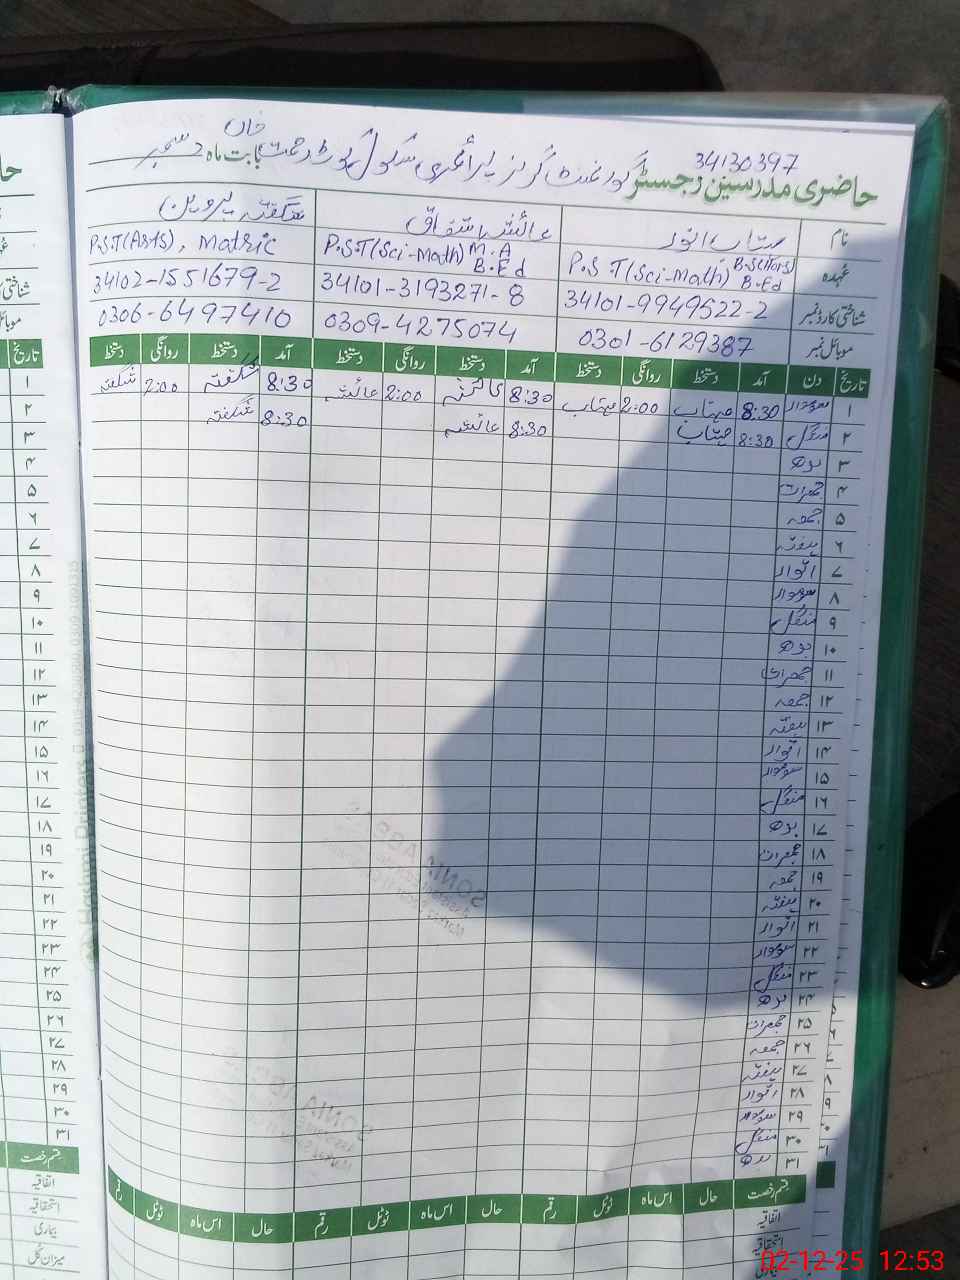 34130397
خاں
حاضری مدرسین رجسٹر گورنمنٹ گرلز پرائمری سکول کوٹ رحمت بابت ماہ دسمبر
نام مہتاب انور عائشہ مشتاق شگفتہ پروین
عہدہ P.S.T(Sci-Math) B.Sc(Hons) B.Ed P.S.T(Sci-Math) M.A B.Ed P.S.T(Arts), Matric
شناختی کارڈ نمبر 34101-9949522-2 34101-3193271-8 34102-1551679-2
موبائل نمبر 0301-6129387 0309-4275074 0306-6497410
تاریخ دن آمد دستخط روانگی دستخط آمد دستخط روانگی دستخط آمد دستخط روانگی دستخط
۱ سوموار 8:30 مہتاب 2:00 مہتاب 8:30 عائشہ 2:00 عائشہ 8:30 شگفتہ 2:00 شگفتہ
۲ منگل 8:30 مہتاب 8:30 عائشہ 8:30 شگفتہ
۳ بدھ
۴ جمعرات
۵ جمعہ
۶ ہفتہ
۷ اتوار
۸ سوموار
۹ منگل
۱۰ بدھ
۱۱ جمعرات
۱۲ جمعہ
۱۳ ہفتہ
۱۴ اتوار
۱۵ سوموار
۱۶ منگل
۱۷ بدھ
۱۸ جمعرات
۱۹ جمعہ
۲۰ ہفتہ
۲۱ اتوار
۲۲ سوموار
۲۳ منگل
۲۴ بدھ
۲۵ جمعرات
۲۶ جمعہ
۲۷ ہفتہ
۲۸ اتوار
۲۹ سوموار
۳۰ منگل
۳۱ بدھ
قسم رخصت حال اس ماہ ٹوٹل رقم حال اس ماہ ٹوٹل رقم حال اس ماہ ٹوٹل رقم
اتفاقیہ
استحقاقیہ
تاریخ
۱
۲
۳
۴
۵
۶
۷
۸
۹
۱۰
۱۱
۱۲
۱۳
۱۴
۱۵
۱۶
۱۷
۱۸
۱۹
۲۰
۲۱
۲۲
۲۳
۲۴
۲۵
۲۶
۲۷
۲۸
۲۹
۳۰
۳۱
قسم رخصت
اتفاقیہ
استحقاقیہ
بیماری
میزان کل
02-12-25 12:53